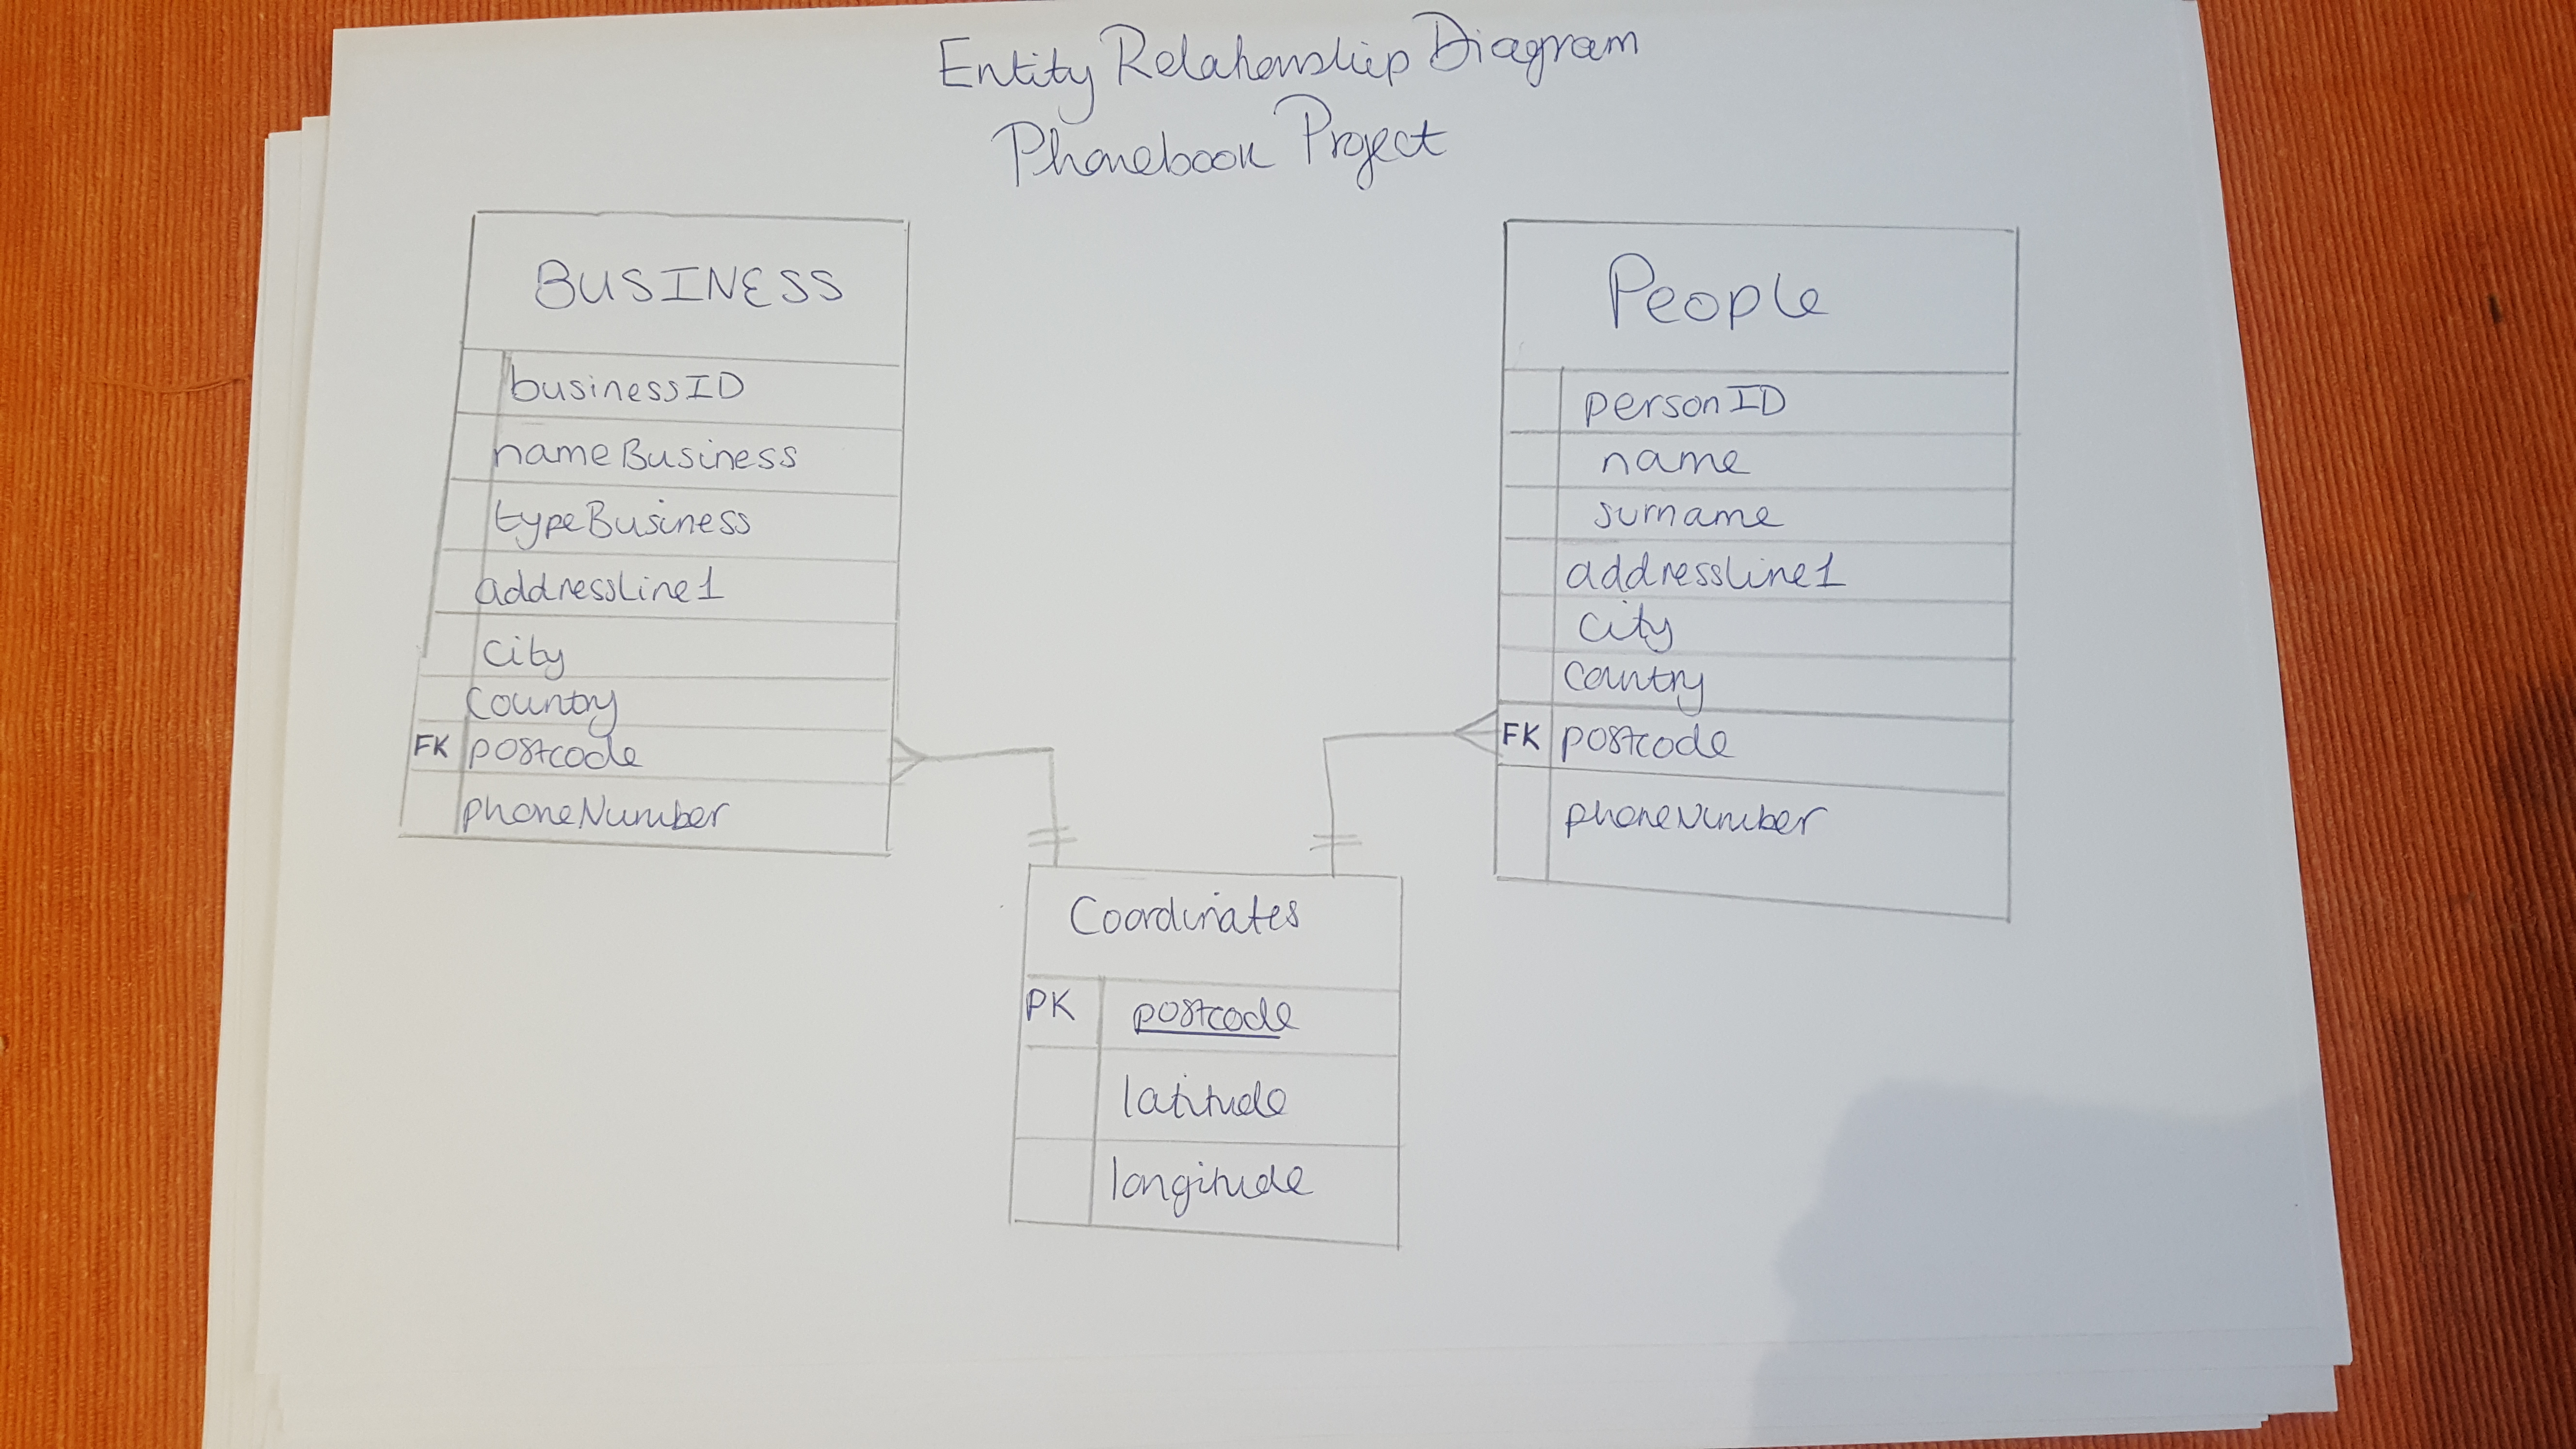 Entity Relationship Diagram
Phonebook Project
BUSINESS
businessID
nameBusiness
typeBusiness
addressLine1
City
Country
FK postcode
phoneNumber
People
personID
name
surname
addressLine1
City
Country
FK postcode
phoneNumber
Coordinates
PK postcode
latitude
longitude